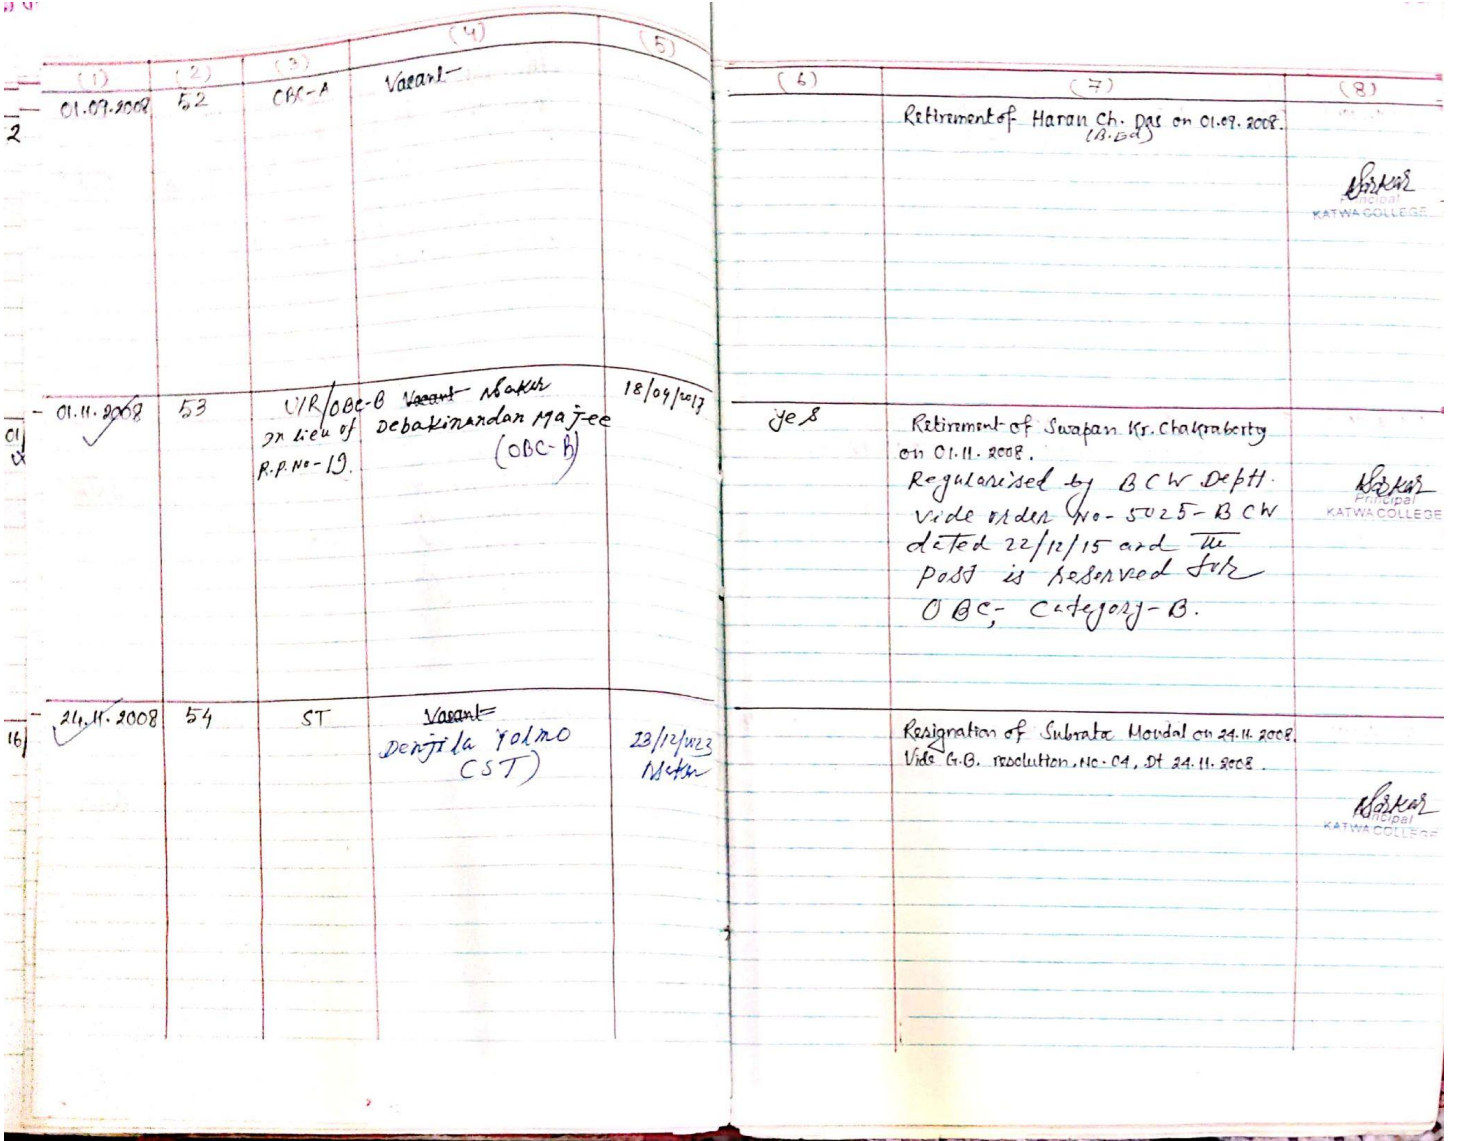 (1) (2) (3) (4) (5) (6) (7) (8)
2
01.09.2008 52 OBC-A Vacant
Retirement of Haran Ch. Das on 01.09.2008.
(B.Ed)
Sarkar
Principal
KATWA COLLEGE
01
01.11.2008 53 U/R/OBC-B Vacant
in lieu of Debakinandan Majee
R.P. No-19. (OBC-B)
18/04/2017
yes
Retirement of Swapan Kr. Chakraborty
on 01.11.2008.
Regularised by BCW Deptt.
vide order No- 5025-BCW
dated 22/12/15 and the
post is reserved for
OBC, Category-B.
Sarkar
Principal
KATWA COLLEGE
16
24.11.2008 54 ST Vacant
Denjila Yolmo
(ST)
23/12/2023
Resignation of Subrata Mondal on 24.11.2008.
Vide G.B. resolution, No-04, Dt 24.11.2008.
Sarkar
Principal
KATWA COLLEGE